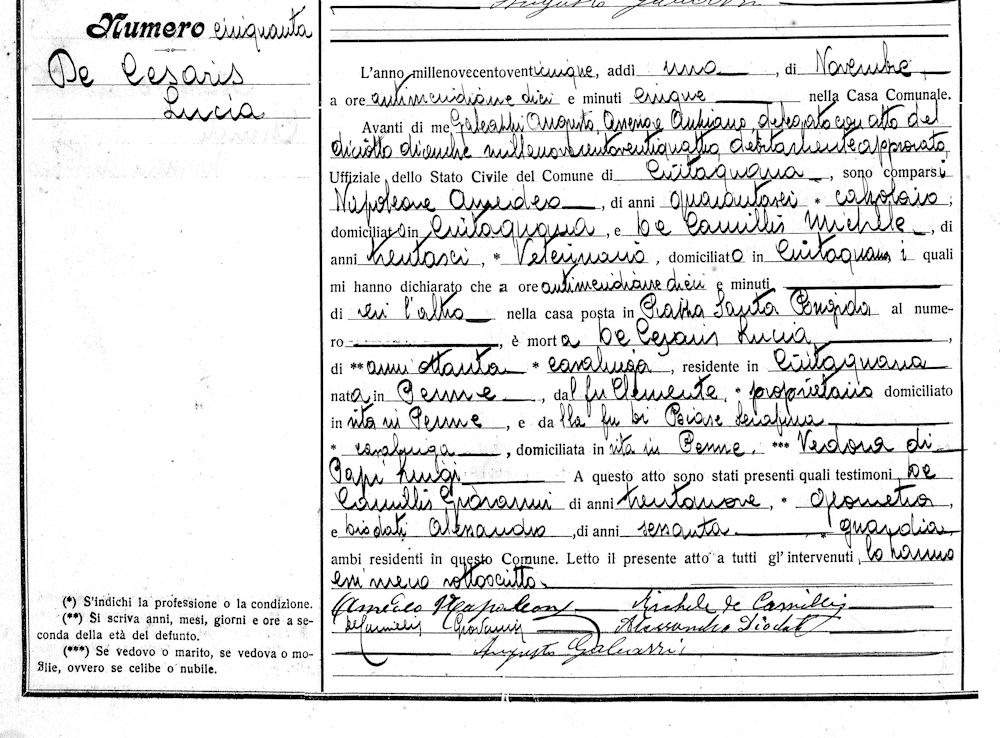 Augusto Galeazzi
Numero cinquanta
De Cesaris
Lucia
L'anno millenovecentoventicinque, addì uno, di Novembre
a ore antimeridiane dieci e minuti cinque nella Casa Comunale.
Avanti di me, Galeazzi Augusto, delegato con atto del
diciotto dicembre millenovecentoventiquattro, debitamente approvato,
Uffiziale dello Stato Civile del Comune di Civitaquana, sono comparsi
Napoleone Amedeo, di anni quarantasei * calzolaio,
domiciliato in Civitaquana, e De Camillis Michele, di
anni trentasei, * Veterinario, domiciliato in Civitaquana, i quali
mi hanno dichiarato che a ore antimeridiane dieci e minuti
di ieri l'altro nella casa posta in Piazza Santa Brigida al nume-
ro, è morta De Cesaris Lucia,
di ** anni ottanta * casalinga, residente in Civitaquana
nata in Penne, dal fu Clemente, * proprietario domiciliato
in vita in Penne, e dalla fu Di Biase Serafina
* casalinga, domiciliata in vita in Penne. *** Vedova di
Papi Luigi A questo atto sono stati presenti quali testimoni De
Camillis Giovanni di anni trentanove, * geometra,
e Diodati Alessandro, di anni sessanta * guardia,
ambi residenti in questo Comune. Letto il presente atto a tutti gl'intervenuti, lo hanno
essi meco sottoscritto.
Amedeo Napoleone Michele de Camillis
De Camillis Giovanni Alessandro Diodati
Augusto Galeazzi
(*) S'indichi la professione o la condizione.
(**) Si scriva anni, mesi, giorni e ore a se-
conda della età del defunto.
(***) Se vedovo o marito, se vedova o mo-
glie, ovvero se celibe o nubile.